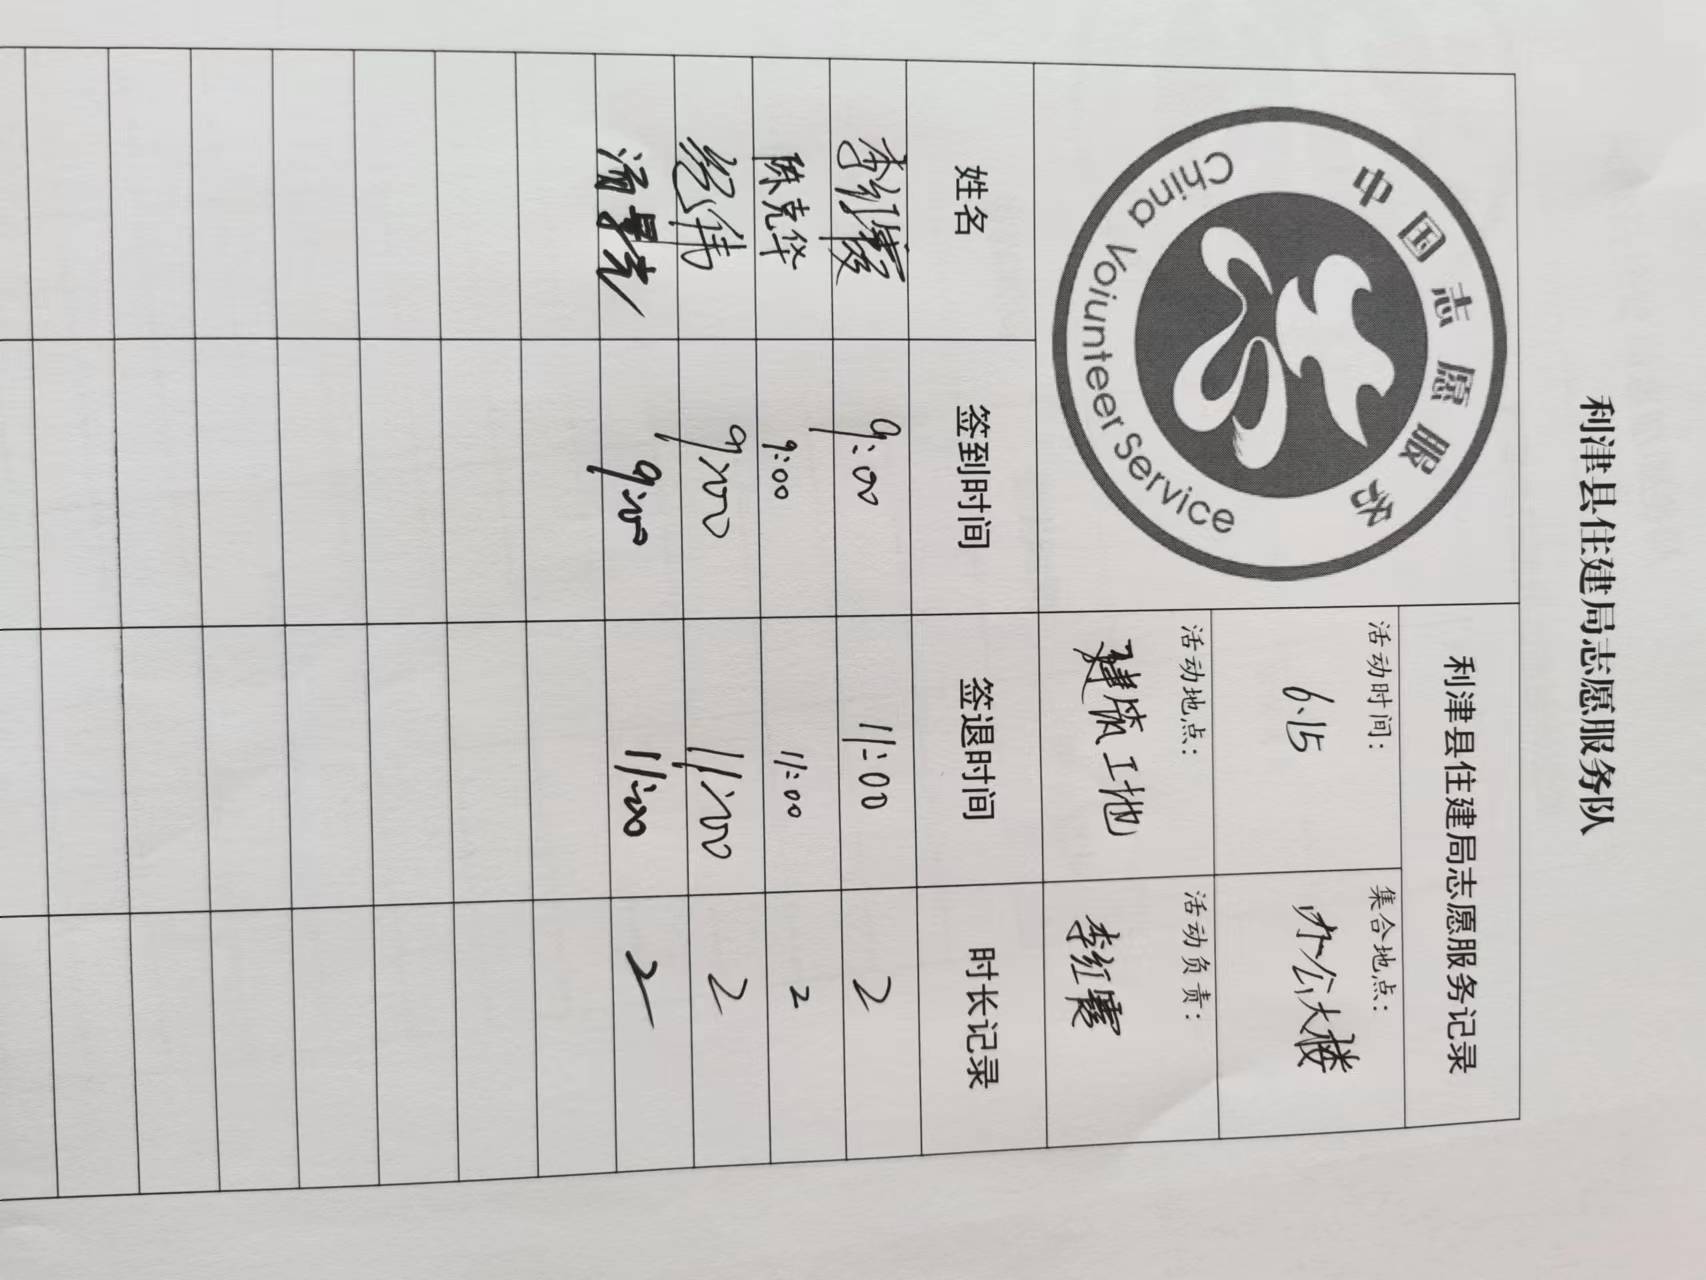 利津县住建局志愿服务队
中国志愿服务
China Voiunteer Service
利津县住建局志愿服务记录
活动时间:
6.15
集合地点:
办公大楼
活动地点:
建筑工地
活动负责:
李红霞
姓名 签到时间 签退时间 时长记录
李红霞 9:00 11:00 2
陈克华 9:00 11:00 2
9:00 11:00 2
9:00 11:00 2